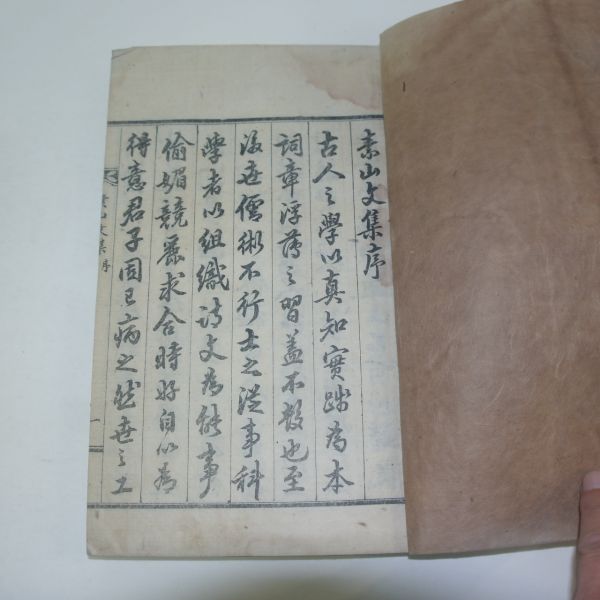 素山文集序
古人之學以真知實踐為本
詞章浮薄之習盖不數也至
後世儒術不行士之從事科
學者以組織詩文為能事
偷媚競麗求合時好自以為
得意君子固已病之然世之工
素山文集 序 一